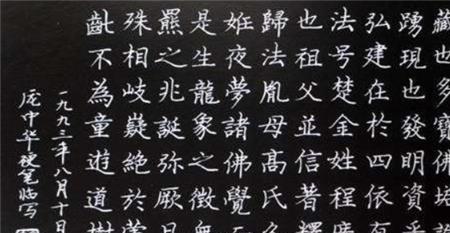 藏也多寶佛塔
踴現也發明資乎
弘建在於四依有
法号楚金姓程廣
也祖父並信著釋
歸法胤母高氏久
妊夜夢諸佛覺
是生龍象之徵無
羆之兆誕弥厥月
殊相岐嶷絕於葷
齔不為童遊道樹
一九九三年八月十日
庞中华硬笔临写